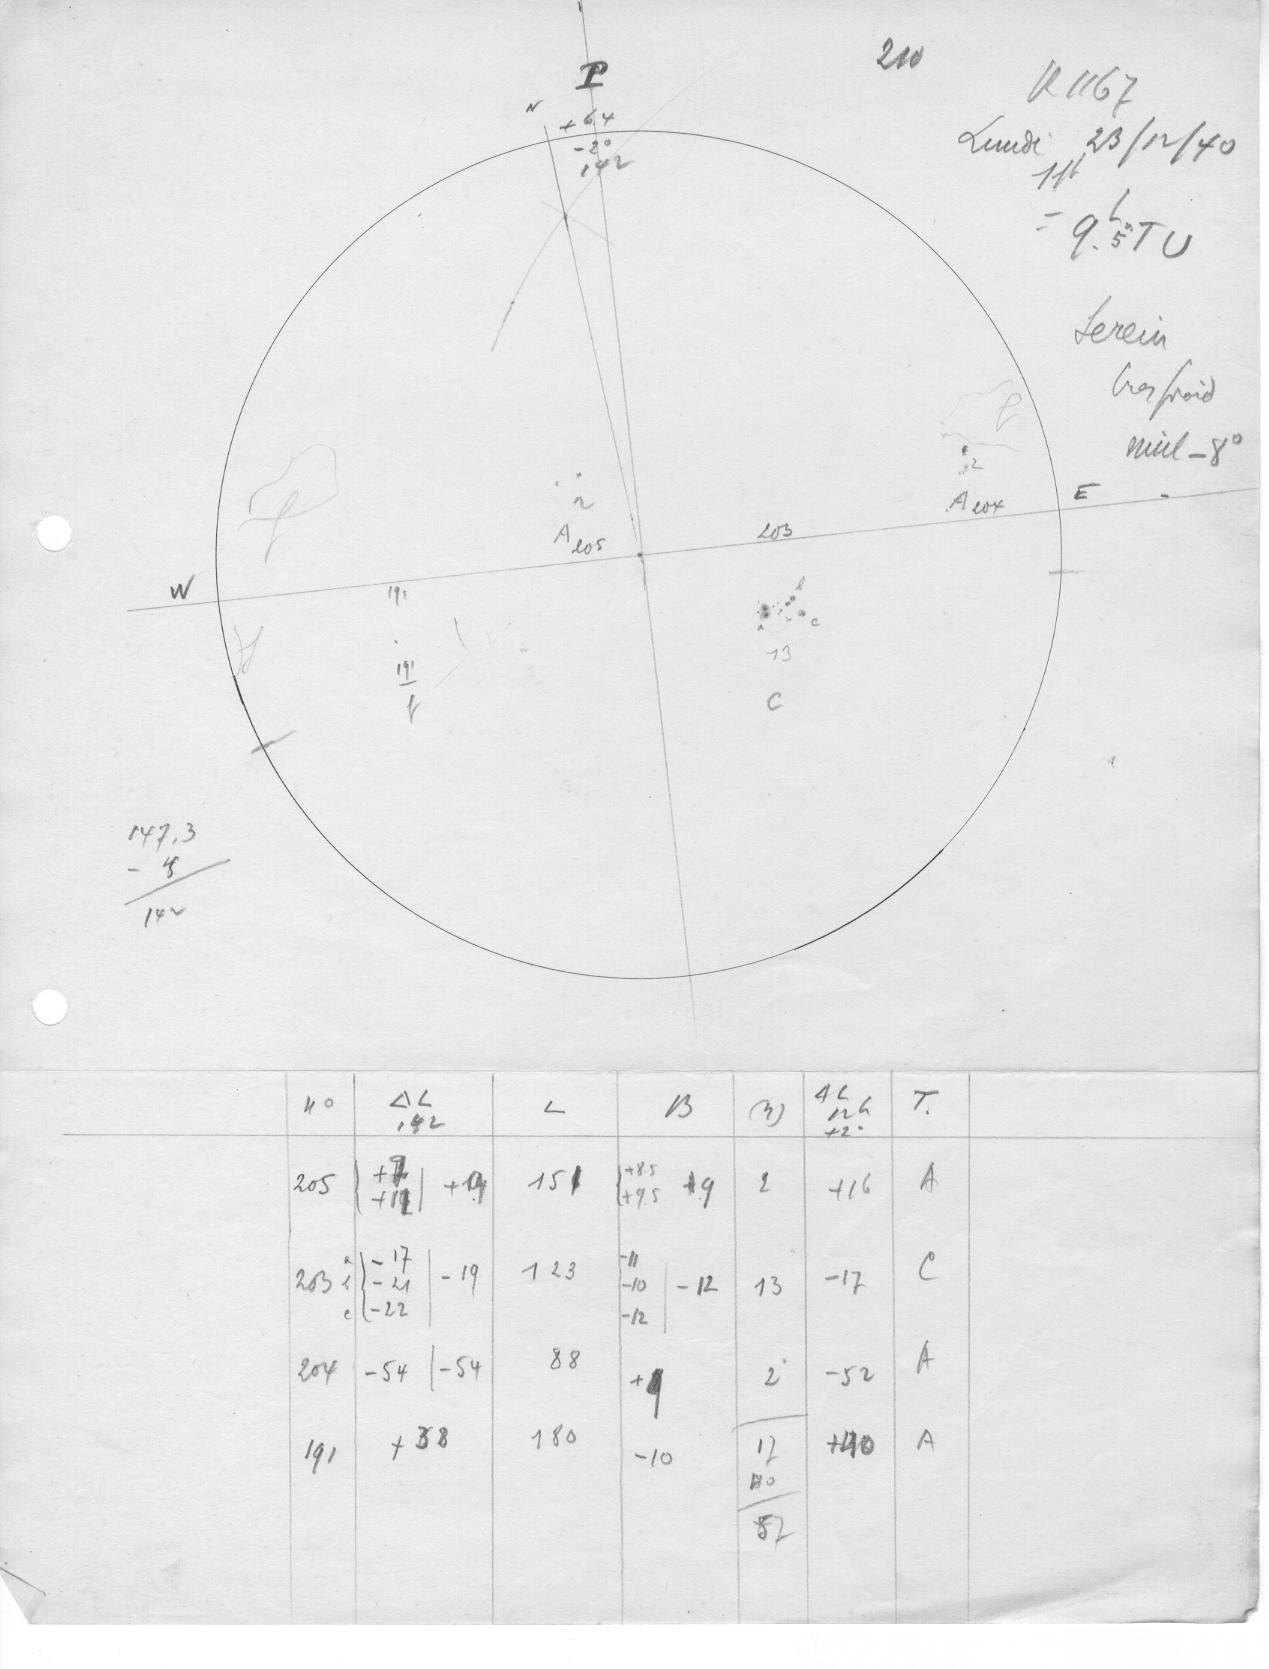 210
R 1167
Lundi 23/12/40
11h
= 9.5h TU
Serein
très froid
mül -8°
P
N
+6.4
-2°
142
2
A 204
E
2
A 205
203
W
191
b
a
c
13
C
191
f
f
147.3
142
n° ΔL 142 L B (n) ΔL 12h +2° T.
205 +14 151 +8.5 +9.5 +9 2 +16 A
203 a -17 b -21 c -22 -19 123 -11 -10 -12 -12 13 -17 C
204 -54 -54 88 2 -52 A
191 +38 180 -10 17 +40 A
87